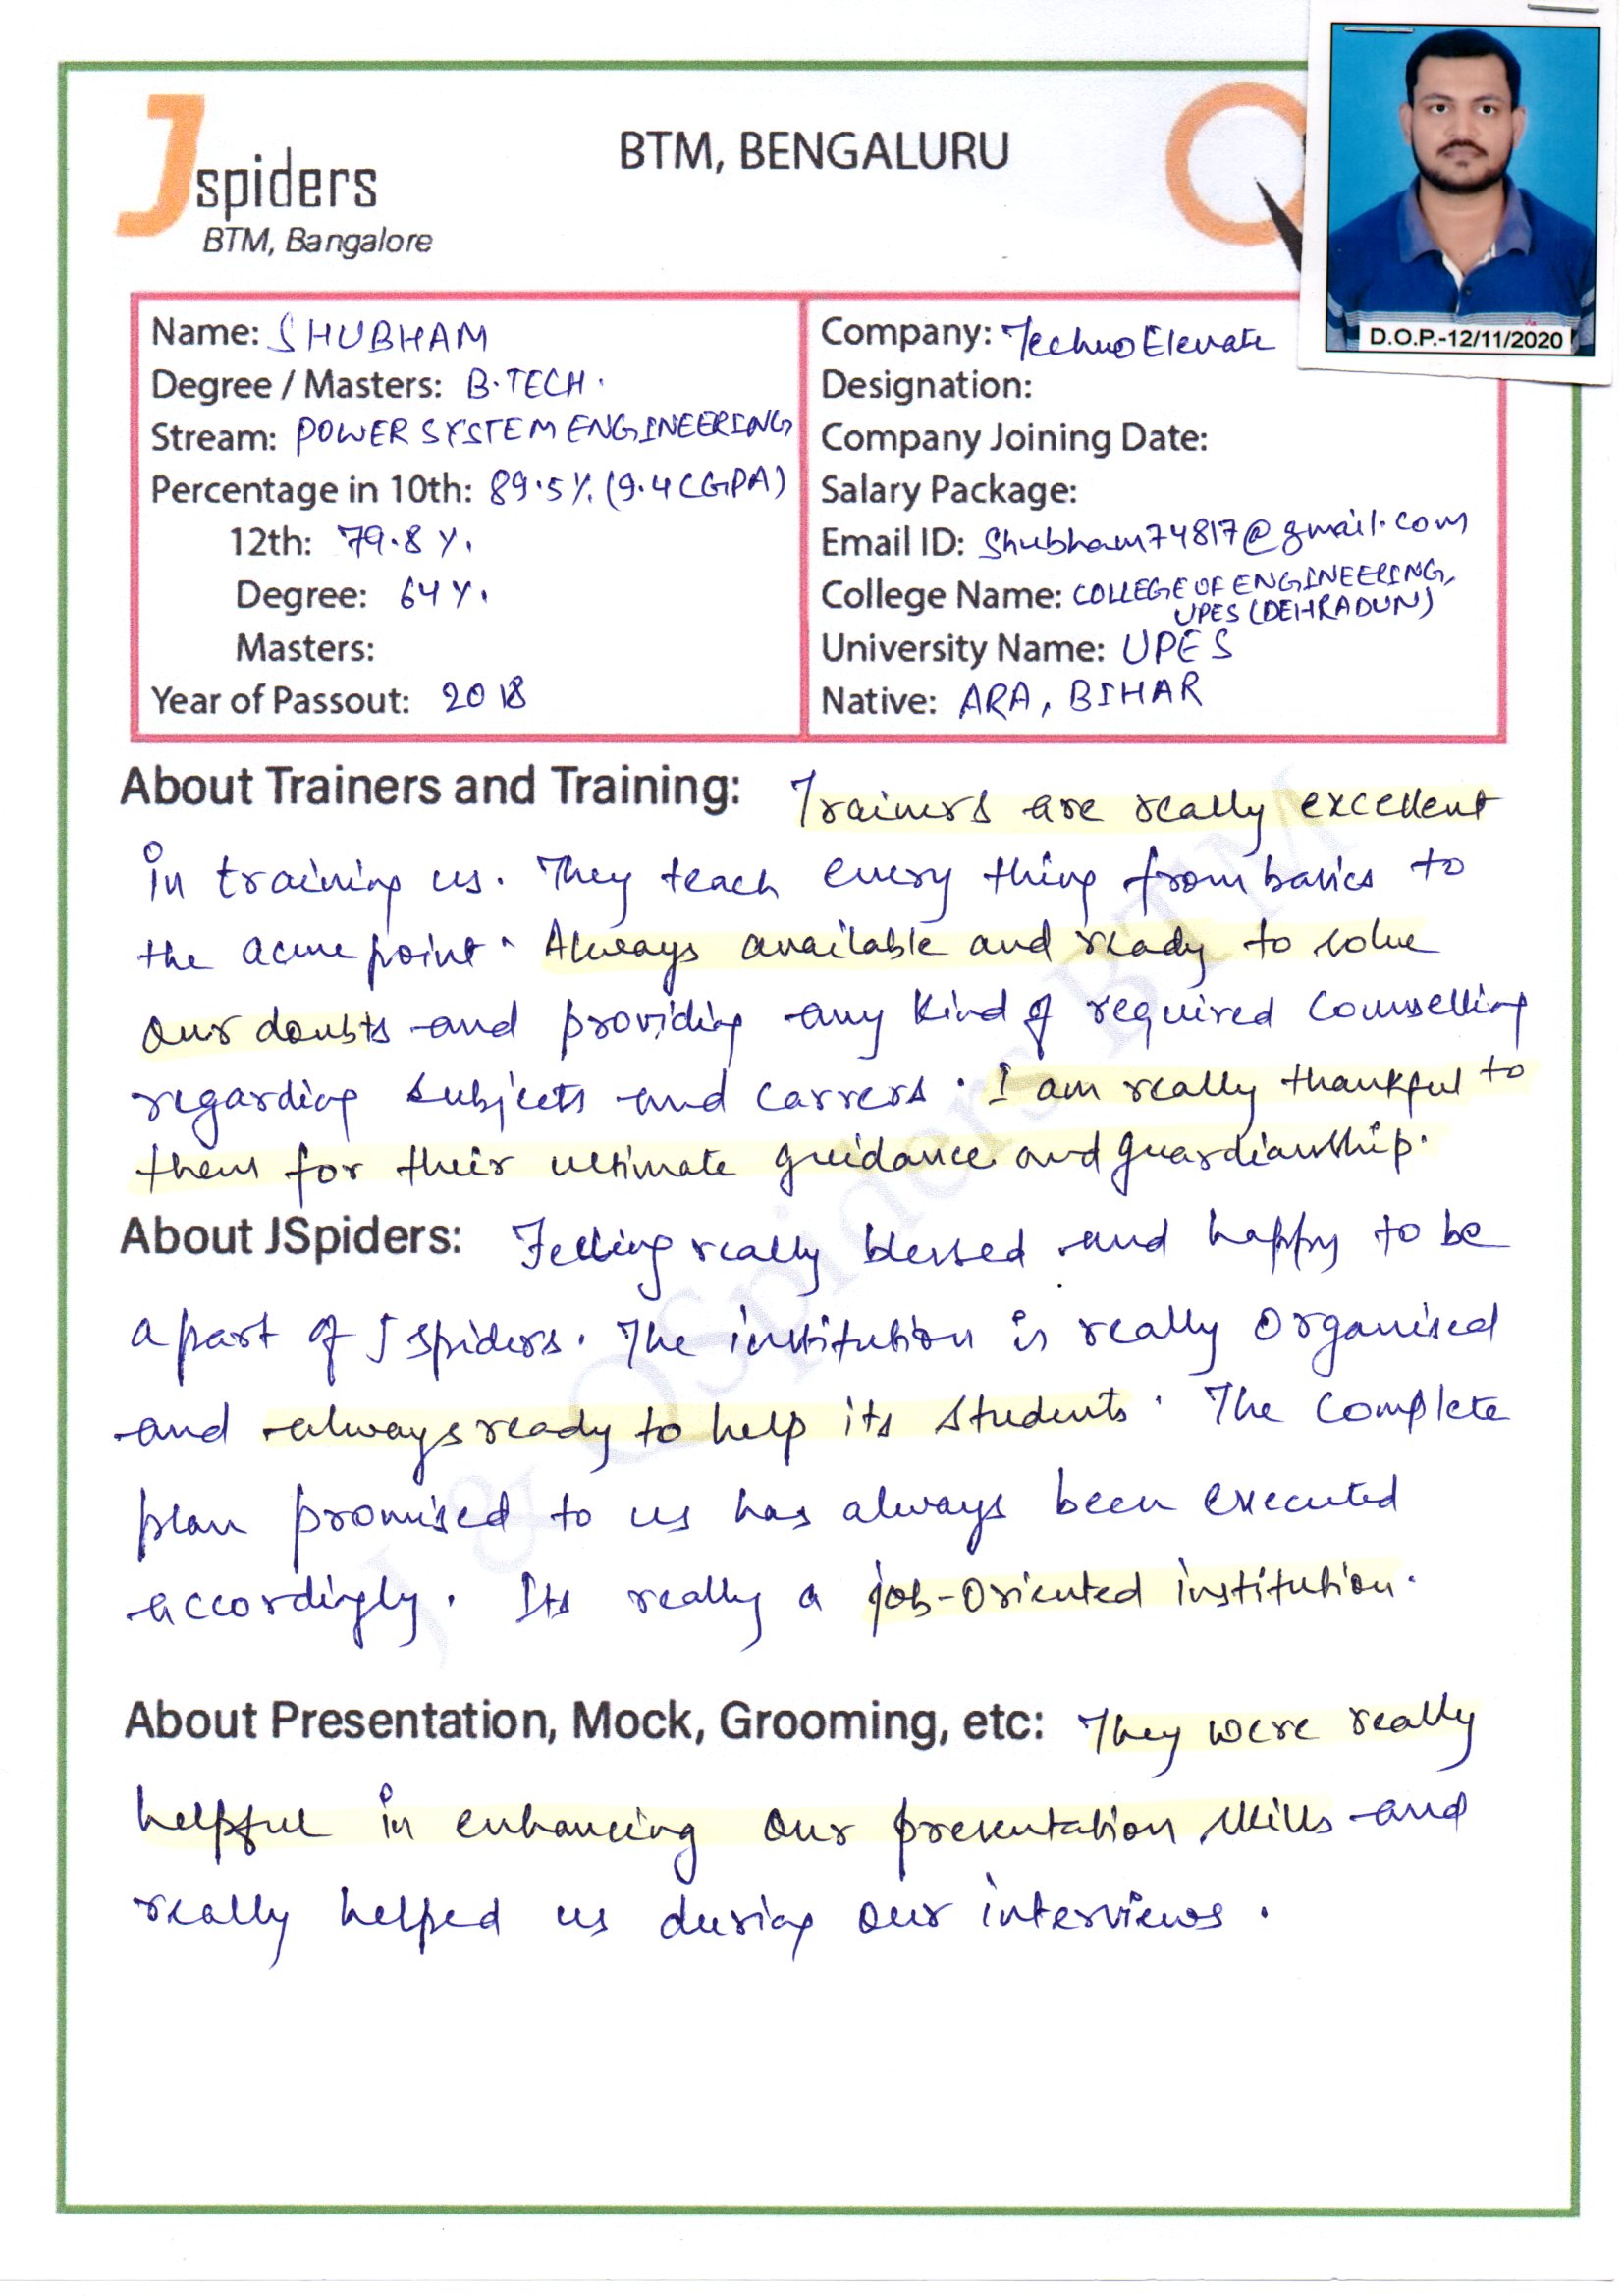 Jspiders
BTM, Bangalore
BTM, BENGALURU
D.O.P.-12/11/2020
Name: SHUBHAM
Degree / Masters: B.TECH.
Stream: POWER SYSTEM ENGINEERING
Percentage in 10th: 89.5% (9.4 CGPA)
12th: 79.8%
Degree: 64%
Masters:
Year of Passout: 2018
Company: TechnoElevate
Designation:
Company Joining Date:
Salary Package:
Email ID: Shubham74817@gmail.com
College Name: COLLEGE OF ENGINEERING,
UPES (DEHRADUN)
University Name: UPES
Native: ARA, BIHAR
About Trainers and Training: Trainers are really excellent
in training us. They teach every thing from basics to
the acme point. Always available and ready to solve
our doubts and providing any kind of required counselling
regarding subjects and carrers. I am really thankful to
them for their ultimate guidance and guardianship.
About JSpiders: Feeling really blessed and happy to be
a part of J spiders. The institution is really organised
and always ready to help its students. The complete
plan promised to us has always been executed
accordingly. Its really a job-oriented institution.
About Presentation, Mock, Grooming, etc: They were really
helpful in enhancing our presentation skills and
really helped us during our interviews.
J & QSpiders BTM